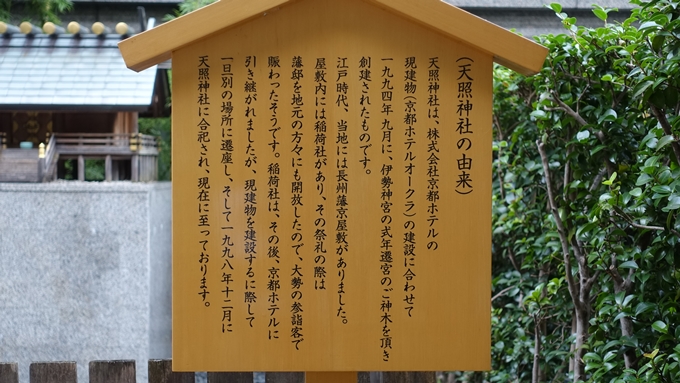 (天照神社の由来)
天照神社は、株式会社京都ホテルの
現建物(京都ホテルオークラ)の建設に合わせて
一九九四年九月に、伊勢神宮の式年遷宮のご神木を頂き
創建されたものです。
江戸時代、当地には長州藩京屋敷がありました。
屋敷内には稲荷社があり、その祭礼の際は
藩邸を地元の方々にも開放したので、大勢の参詣客で
賑わったそうです。稲荷社は、その後、京都ホテルに
引き継がれましたが、現建物を建設するに際して
一旦別の場所に遷座し、そして一九九八年十二月に
天照神社に合祀され、現在に至っております。